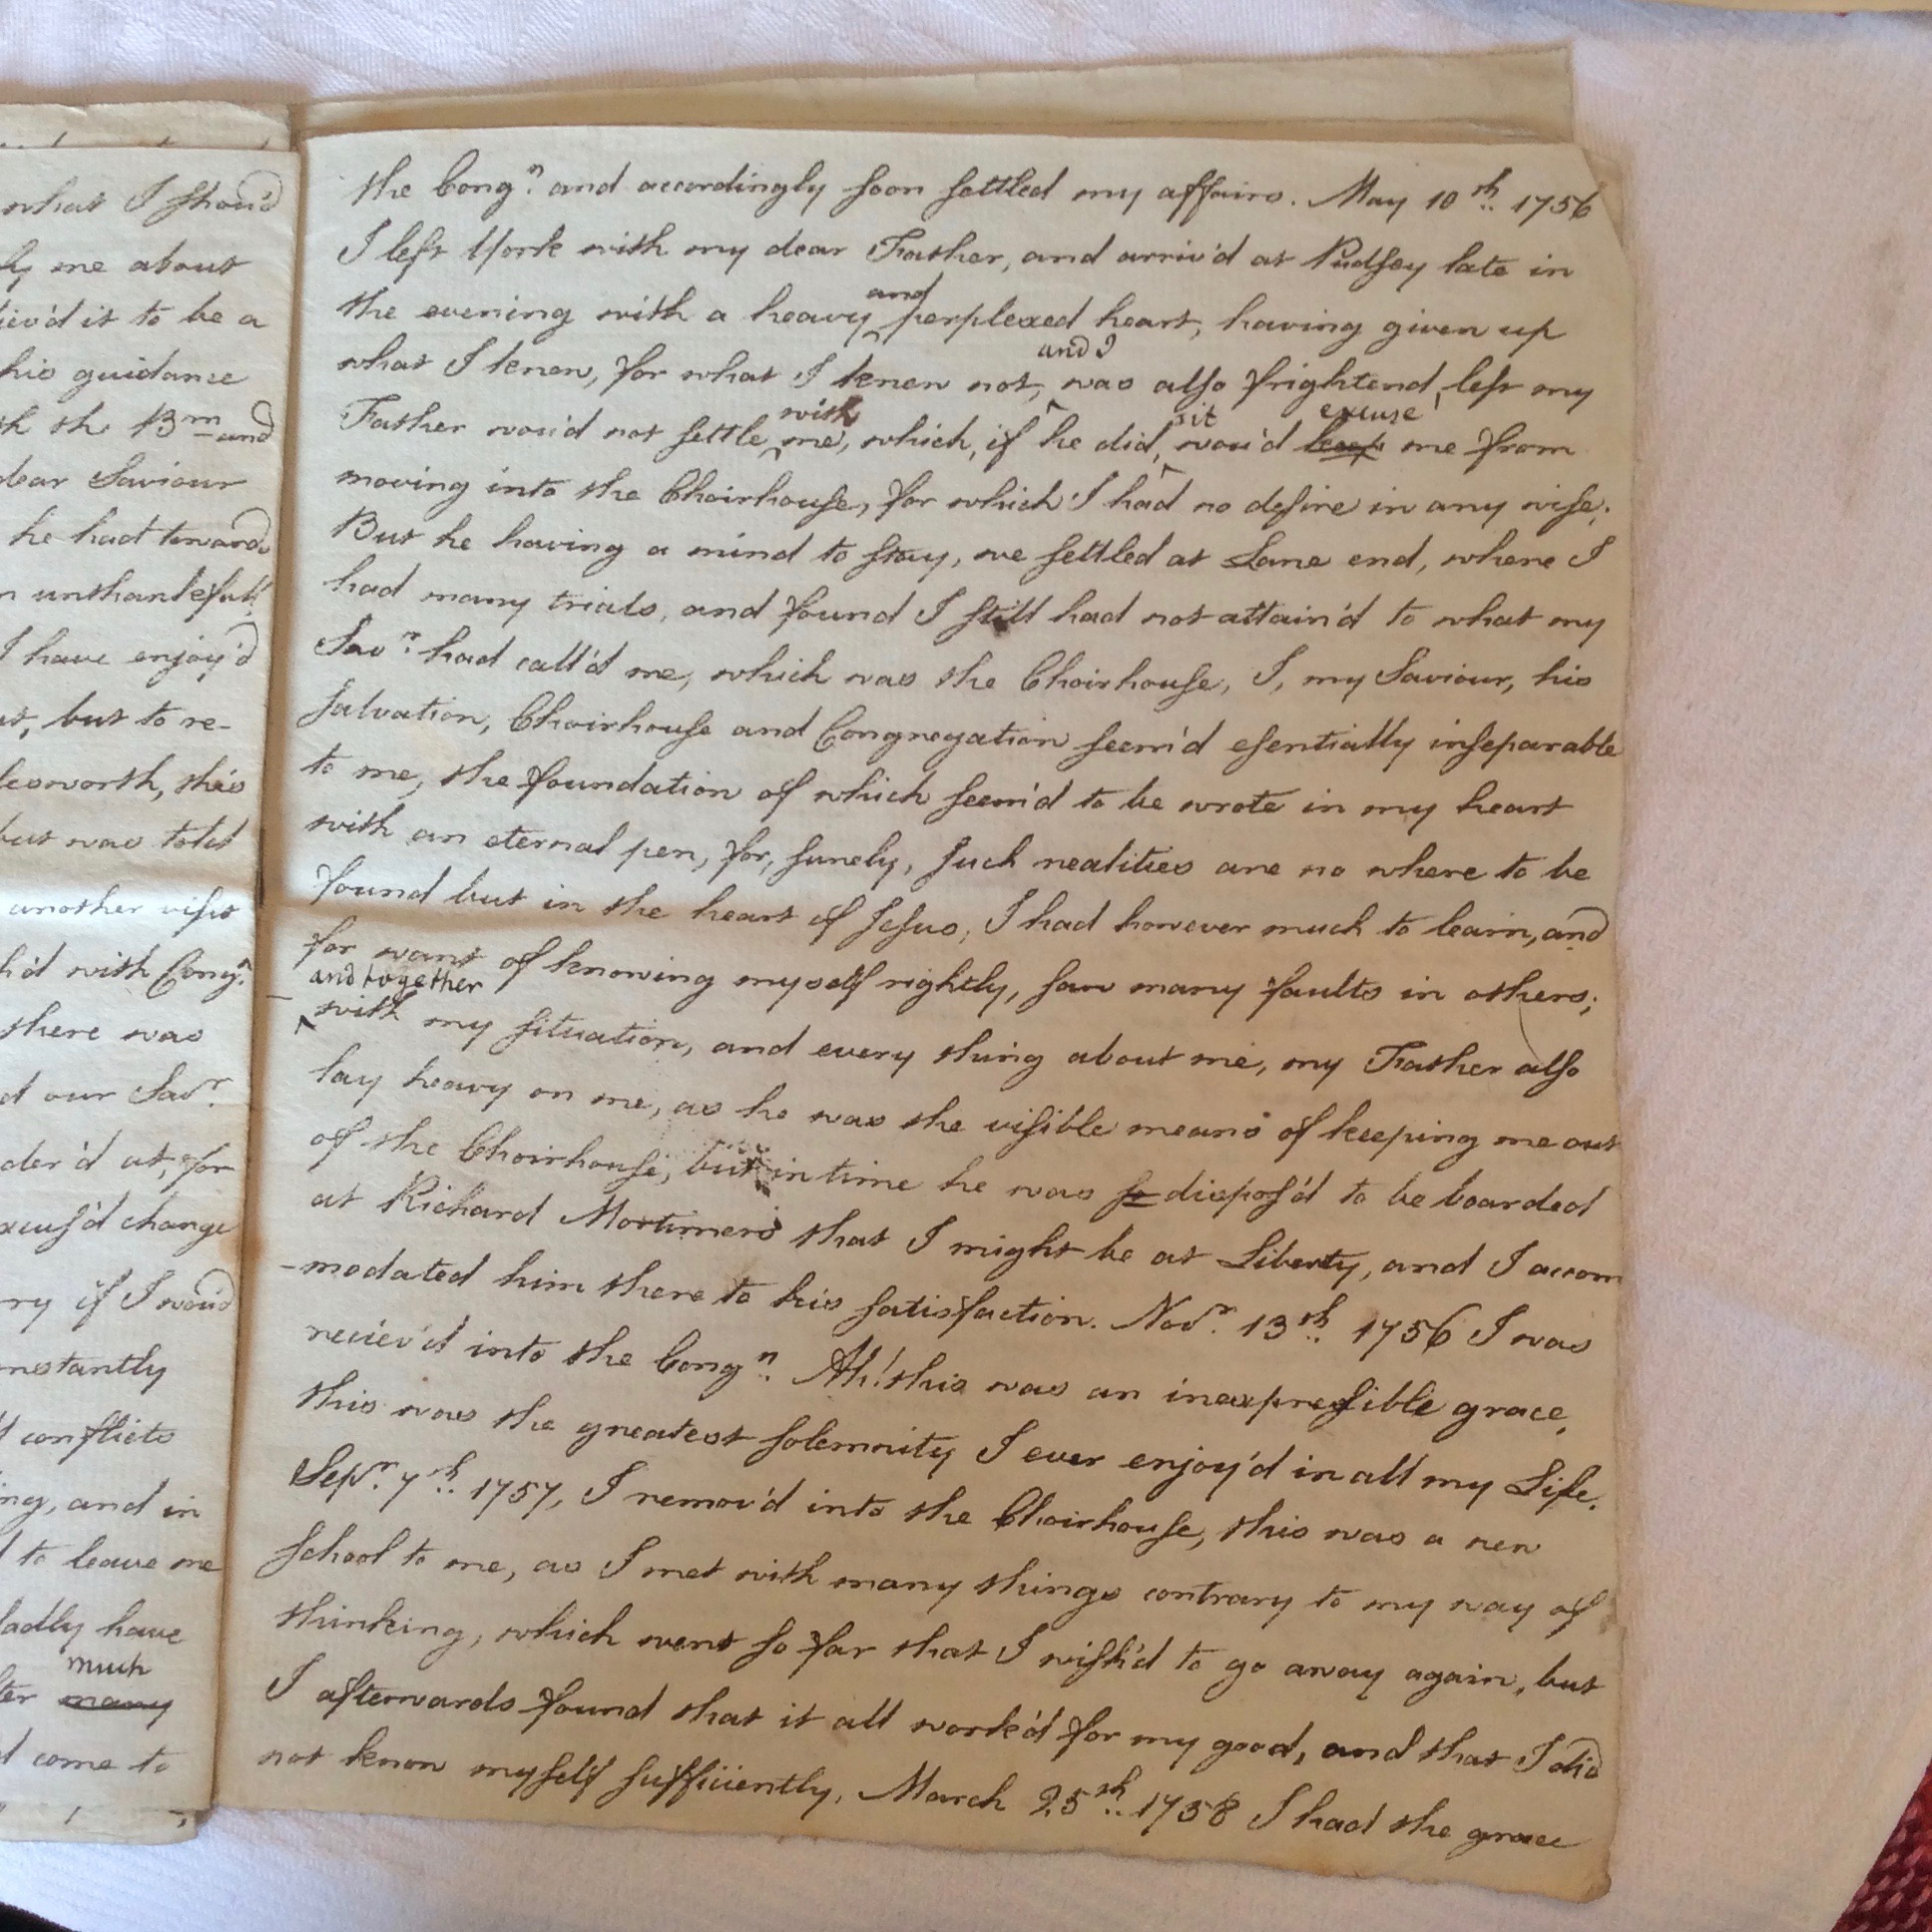 what I shou'd
me about
liev'd it to be a
his guidance
Brn and
dear Saviour
he had towards
unthankfull
I have enjoy'd
but to re-
lesworth, this
but was told
another visit
h'd with Cong.n
there was
our Sav.r
der'd at, for
xcus'd change
ry if I wou'd
nstantly
conflicts
ng, and in
to leave me
ladly have
much
ter many
come to
the Cong.n and accordingly soon settled my affairs. May 10th. 1756
I left York with my dear Father, and arriv'd at Pudsey late in
and
the evening with a heavy perplexed heart, having given up
and I
what I knew, for what I knew not, was also frightend, lest my
with it excuse
Father wou'd not settle me, which, if he did, wou'd keep me from
moving into the Choirhouse, for which I had no desire in any wise.
But he having a mind to stay, we settled at Lane end, where I
had many trials, and found I still had not attain'd to what my
Sav.r had call'd me, which was the Choirhouse, I, my Saviour, his
salvation, Choirhouse and Congregation seem'd esentially inseparable
to me, the foundation of which seem'd to be wrote in my heart
with an eternal pen, for, surely, such realities are no where to be
found but in the heart of Jesus, I had however much to learn, and
for want of knowing myself rightly, saw many faults in others;
and together
with my situation, and every thing about me, my Father also
lay heavy on me, as he was the visible means of keeping me out
of the Choirhouse, but in time he was so dispos'd to be boarded
at Richard Mortimer's that I might be at Liberty, and I accom
-modated him there to his satisfaction. Nov.r 13th. 1756 I was
reciev'd into the Cong.n Ah! this was an inexpressible grace,
this was the greatest solemnity I ever enjoy'd in all my Life.
Sep.r 7th. 1757, I remov'd into the Choirhouse, this was a new
school to me, as I met with many things contrary to my way of
thinking, which went so far that I wish'd to go away again, but
I afterwards found that it all work'd for my good, and that I did
not know myself sufficiently, March 25th. 1758 I had the grace